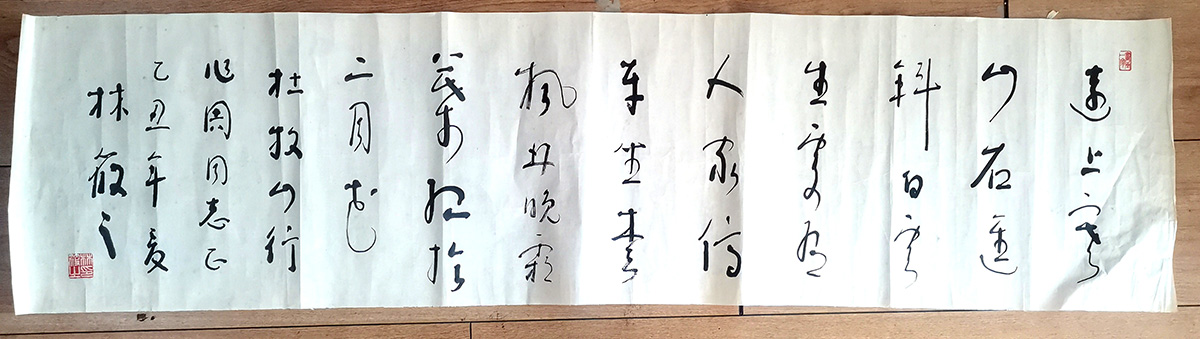 遠上寒
山石逕
斜白雲
生處有
人家停
車坐愛
楓林晚霜
葉紅於
二月花
杜牧山行
國同志正
乙丑年夏
林筱之